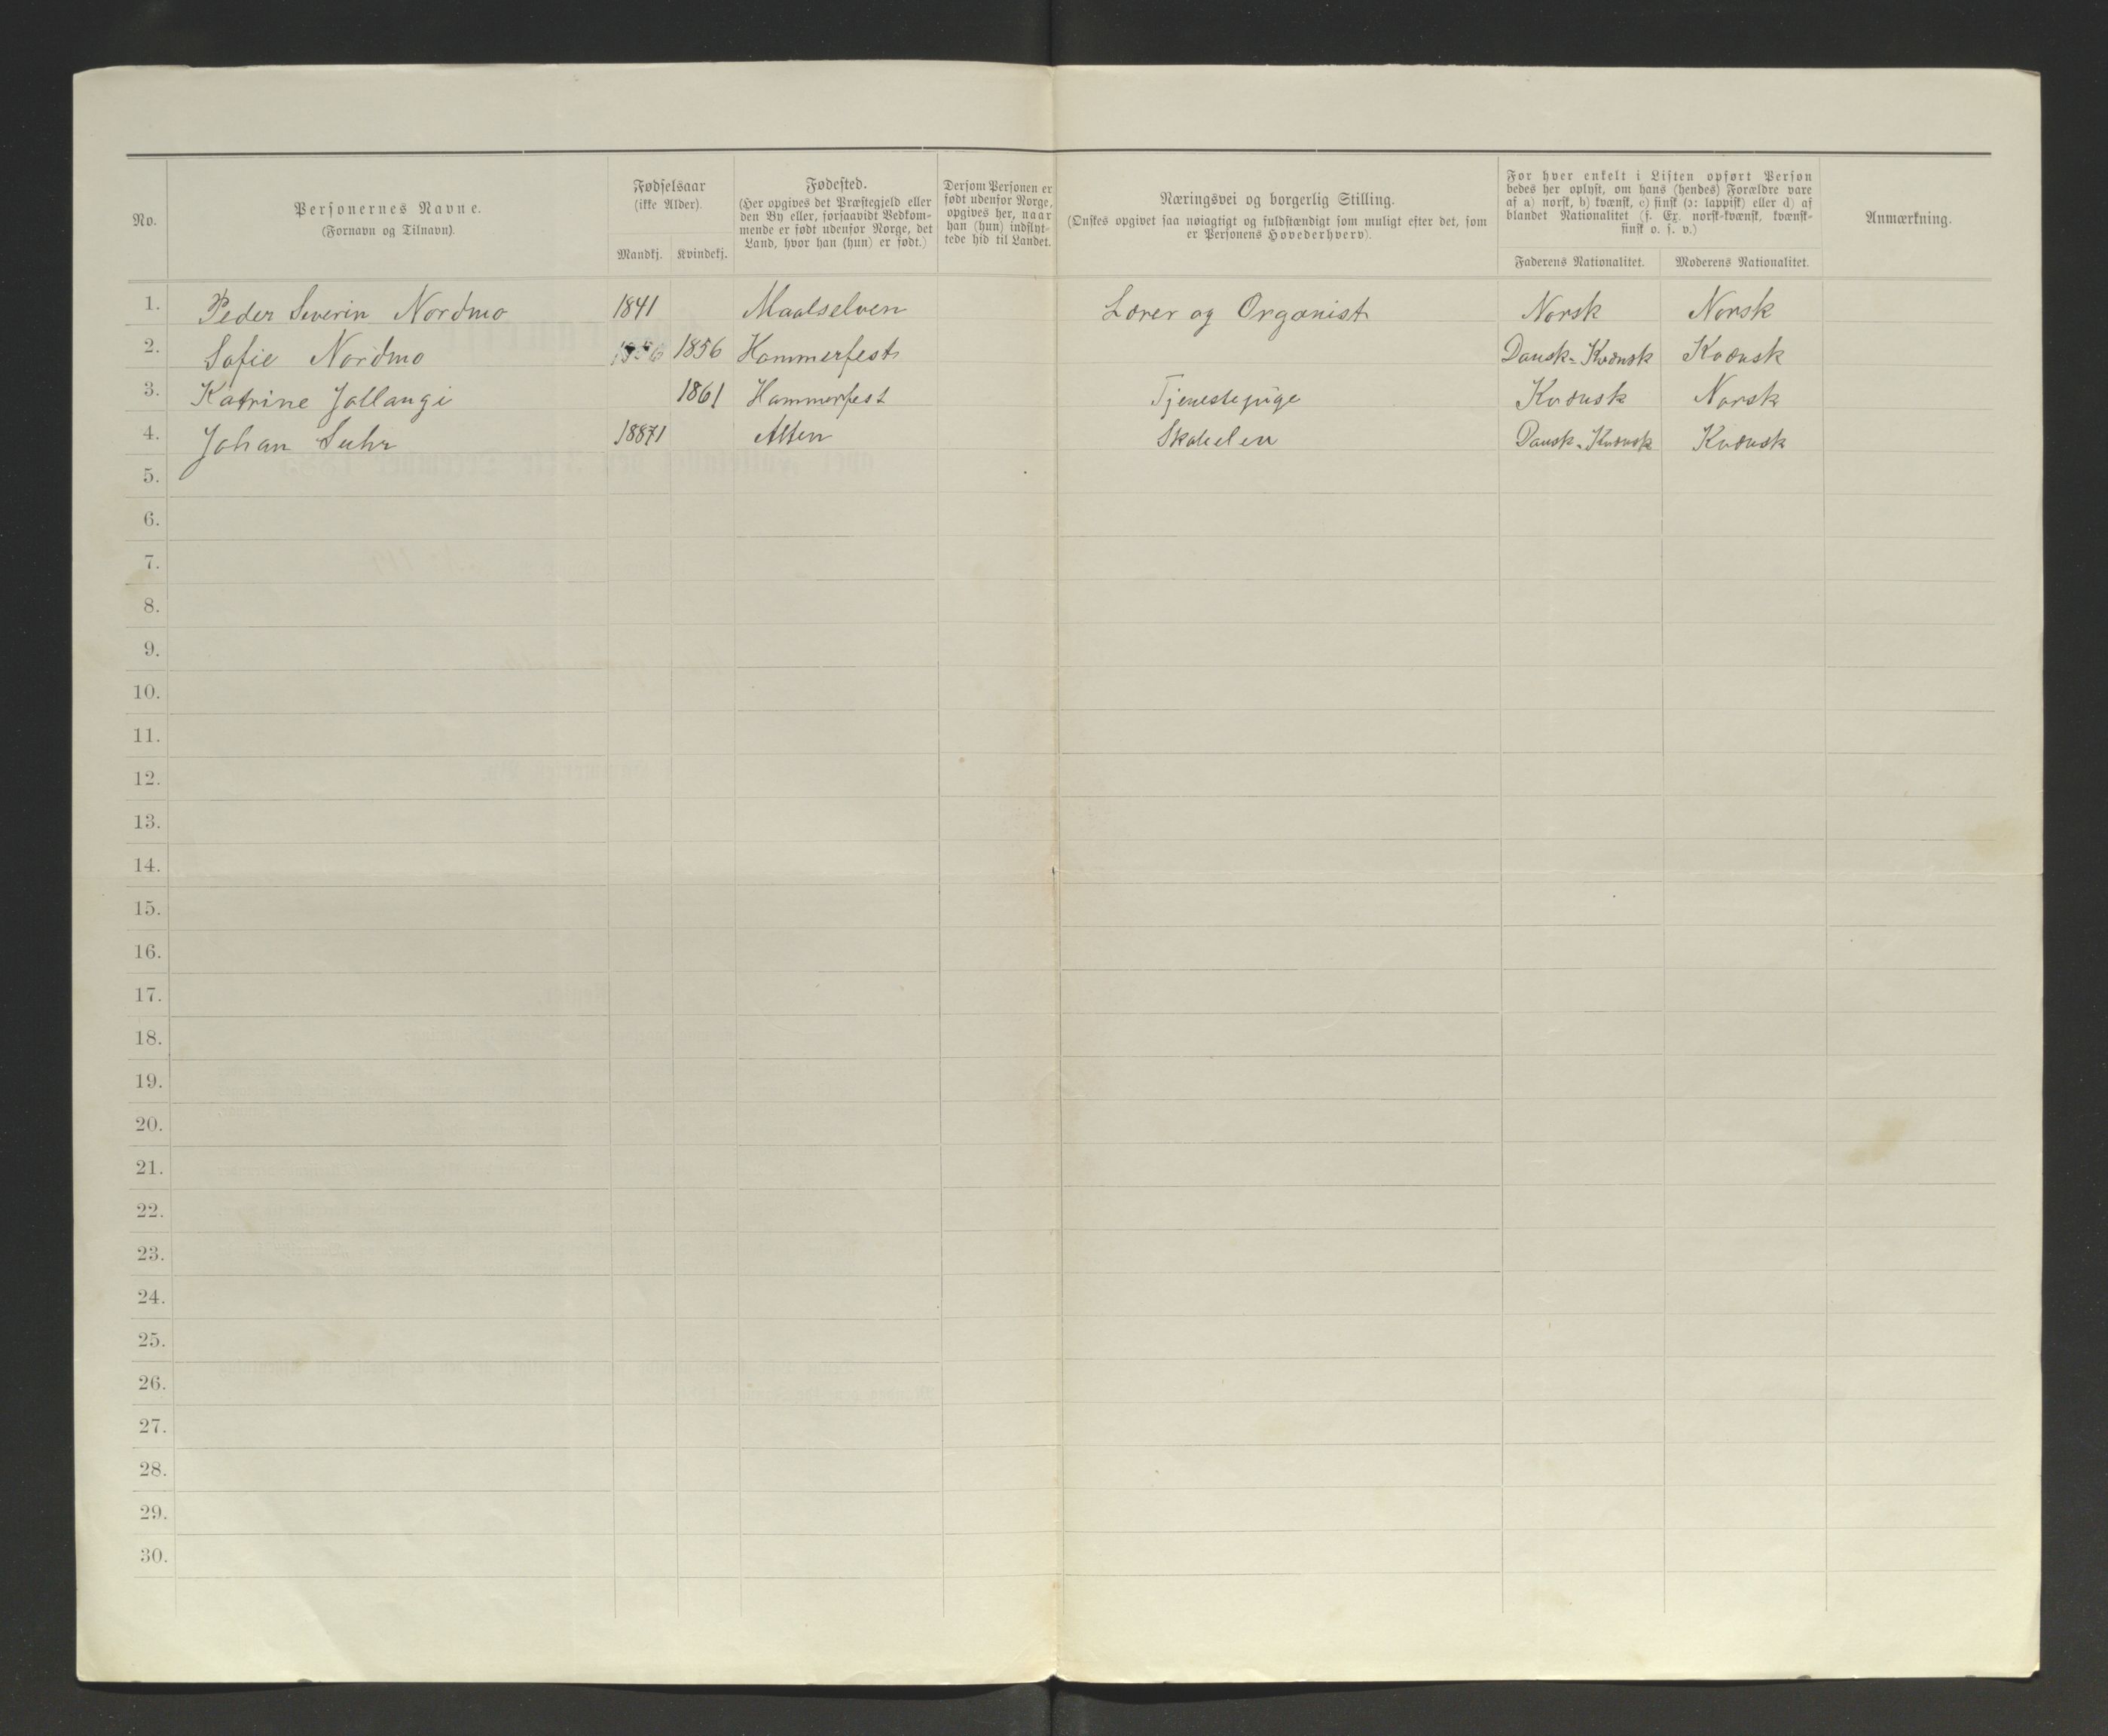 No.
Personernes Navne.
(Fornavn og Tilnavn).
Fødselsaar
(ikke Alder).
Mandkj.
Kvindekj.
Fødested.
(Her opgives det Præstegjeld eller
den By eller, forsaavidt Vedkom-
mende er født udenfor Norge, det
Land, hvor han (hun) er født.)
Dersom Personen er
født udenfor Norge,
opgives her, naar
han (hun) indflyt-
tede hid til Landet.
Næringsvei og borgerlig Stilling.
(Ønskes opgivet saa nøiagtigt og fuldstændigt som muligt efter det, som
er Personens Hovederhverv).
For hver enkelt i Listen opført Person
bedes her oplyst, om hans (hendes) Forældre vare
af a) norsk, b) kvænsk, c) finsk (ɔ: lappisk) eller d) af
blandet Nationalitet (f. Ex. norsk-kvænsk, kvænsk-
finsk o. s. v.)
Faderens Nationalitet.
Moderens Nationalitet.
Anmærkning.
1. Peder Severin Nordmo 1841 Maalselven Lærer og Organist Norsk Norsk
2. Sofie Nordmo 1856 1856 Hammerfest Dansk-Kvænsk Kvænsk
3. Katrine Jollangi 1861 Hammerfest Tjenestepige Kvænsk Norsk
4. Johan Suhr Alten Dansk-Kvænsk Kvænsk
5.
6.
7.
8.
9.
10.
11.
12.
13.
14.
15.
16.
17.
18.
19.
20.
21.
22.
23.
24.
25.
26.
27.
28.
29.
30.